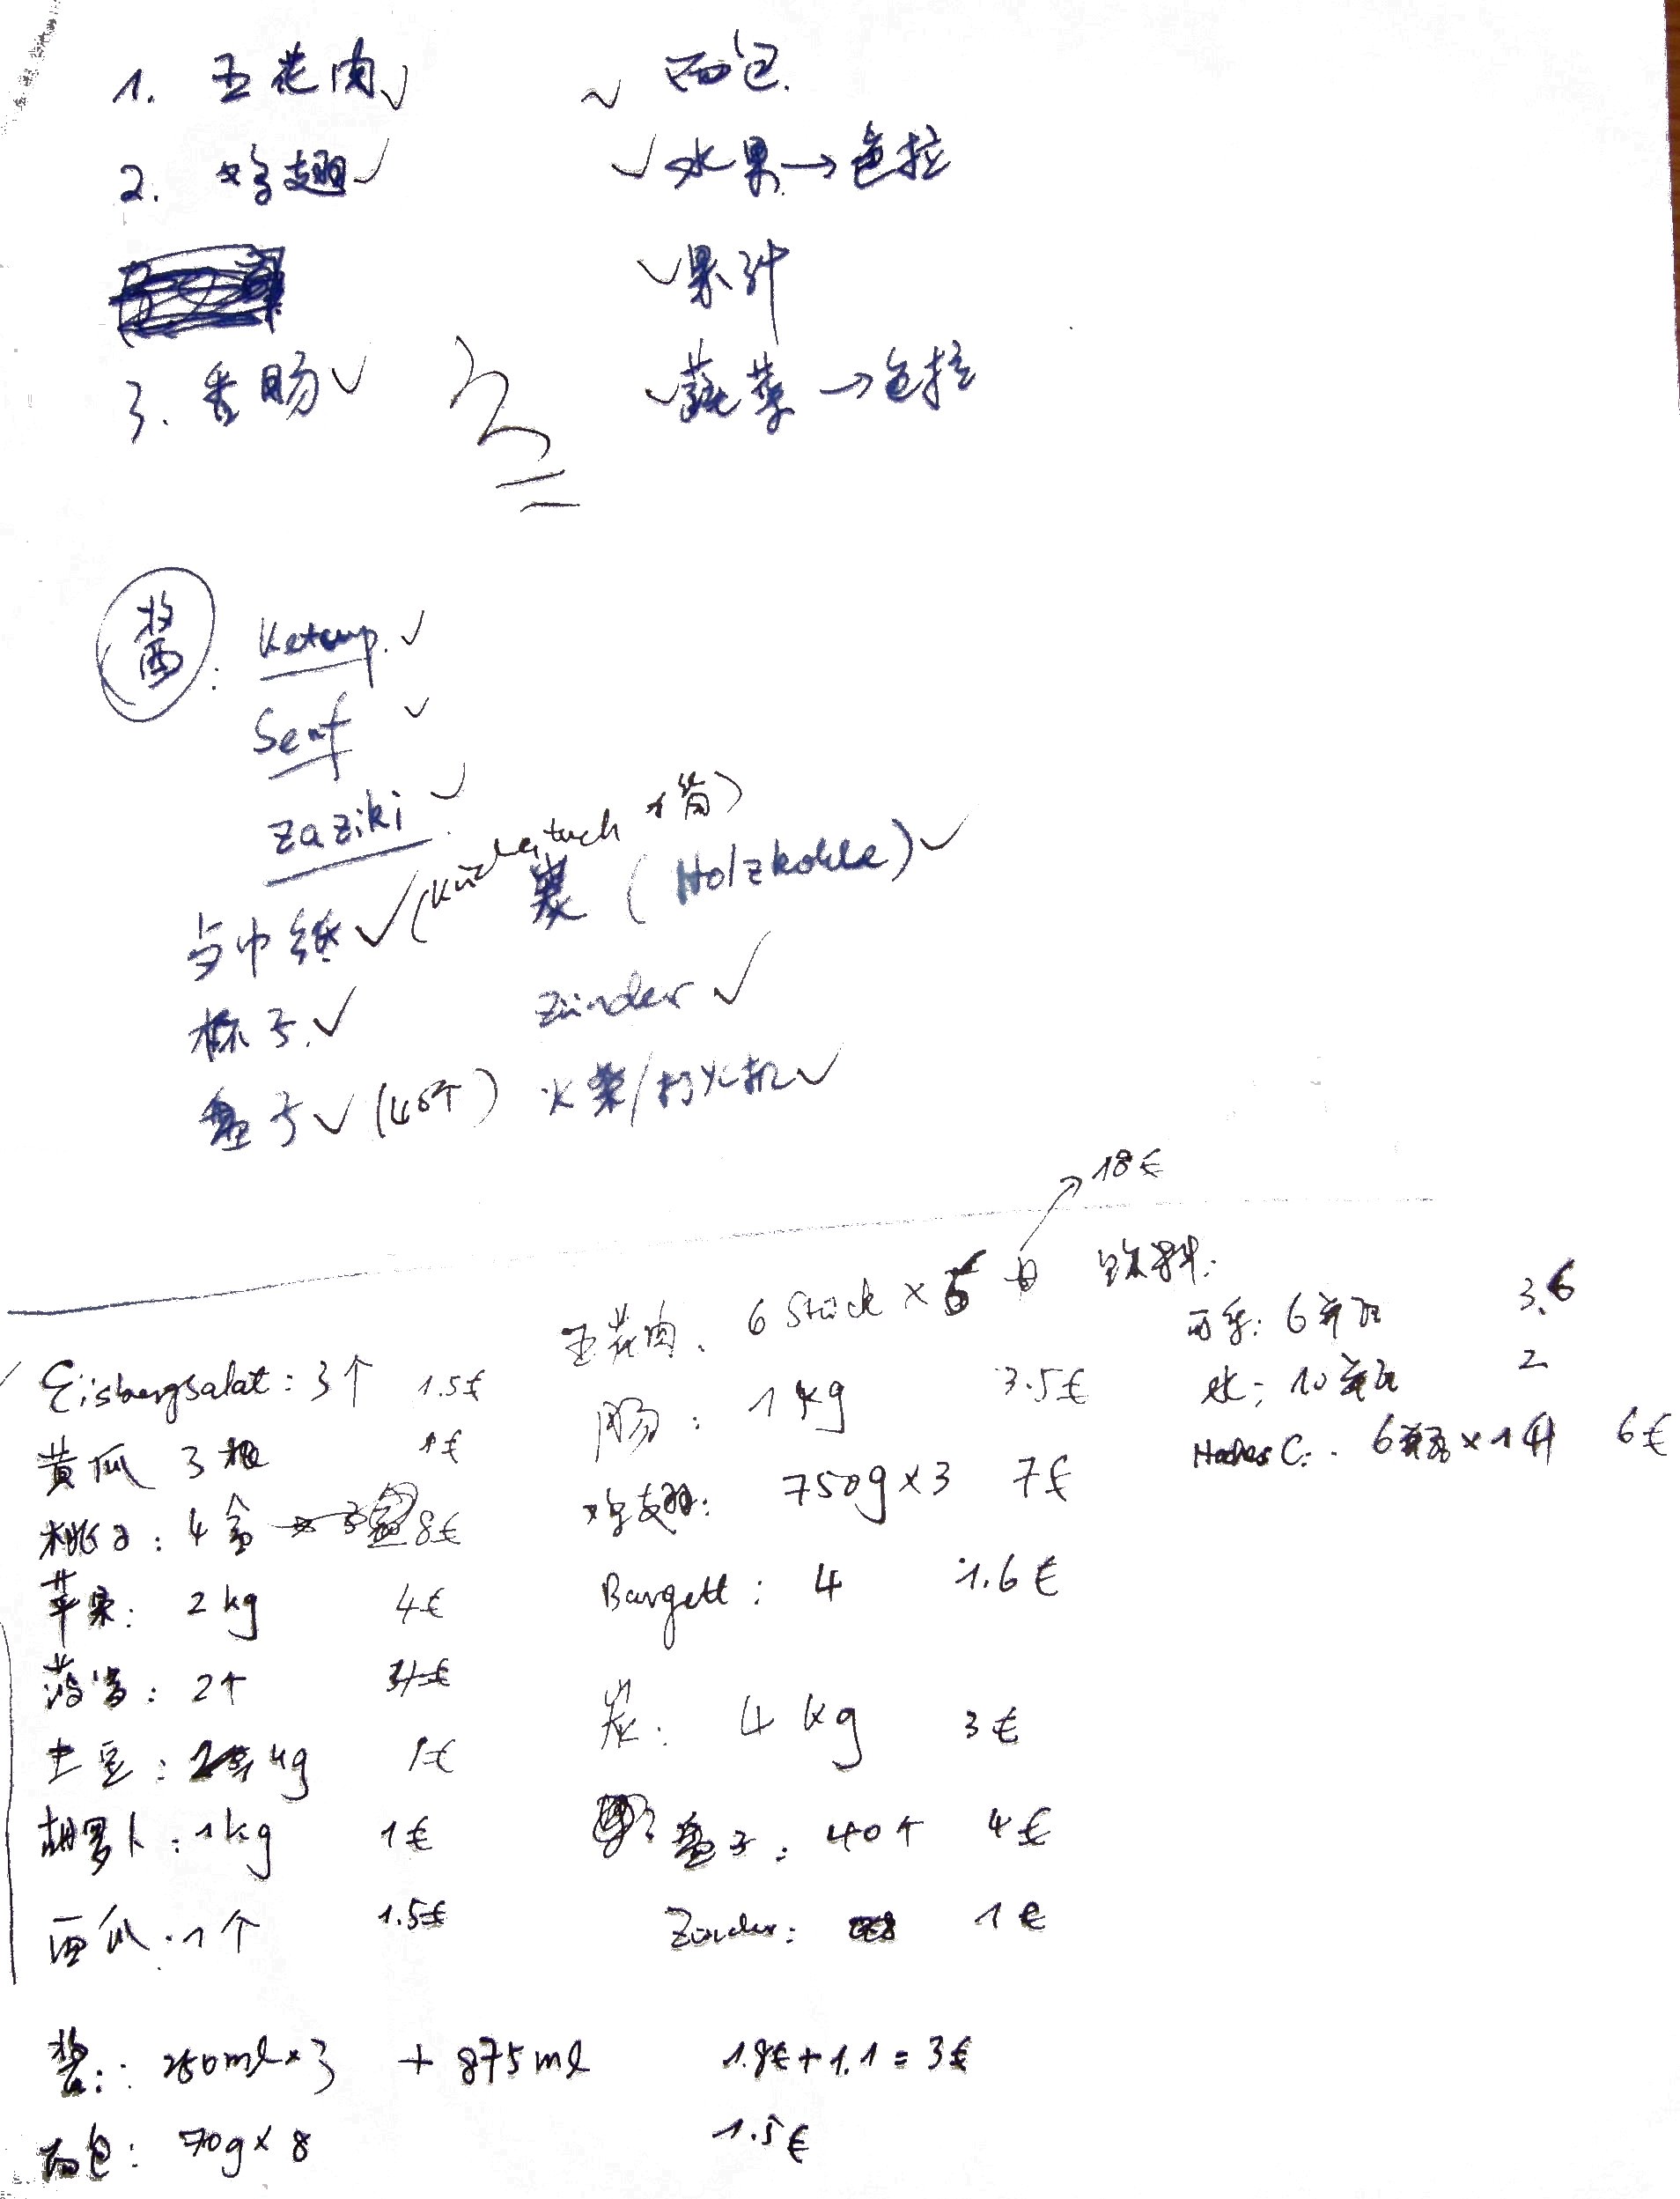 1. 五花肉
2. 鸡翅
3. 香肠
面包.
水果→色拉
果汁
蔬菜→色拉
酱:
Ketcup.
Senf
Zaziki
巾纸 (Küchentuch
杯子.
盘子 (40个)
炭 (Holzkohle)
Zünder
火柴/打火机
18€
Eisbergsalat: 3个 1.5€
黄瓜 3根 1€
桃子: 4盒 8€
苹果: 2kg 4€
菠萝: 2个
土豆: kg 1€
胡萝卜: 1kg 1€
西瓜: 1个 1.5€
五花肉. 6 Stück × 6
肠: 1kg 3.5€
鸡翅: 750g×3 7€
Bargett: 4 1.6€
炭: 4kg 3€
盘子: 40个 4€
Zünder: 1€
饮料:
可乐: 6瓶 3.6
水: 10瓶 2
Hohes C: 6瓶×1 6€
酱: 250ml×3 + 875ml 1.9€+1.1=3€
面包: 70g×8 1.5€